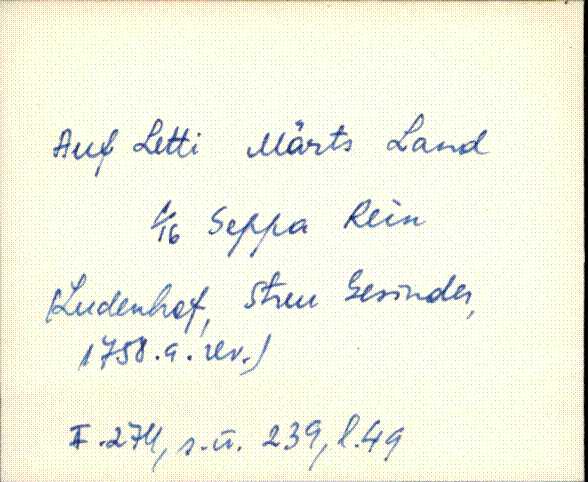 Auf Letti Märts Land
1/16 Seppa Rein
(Ludenhof, Streu Gesinder,
1758.a. rev.)
F.274, s.ü. 239, l.49